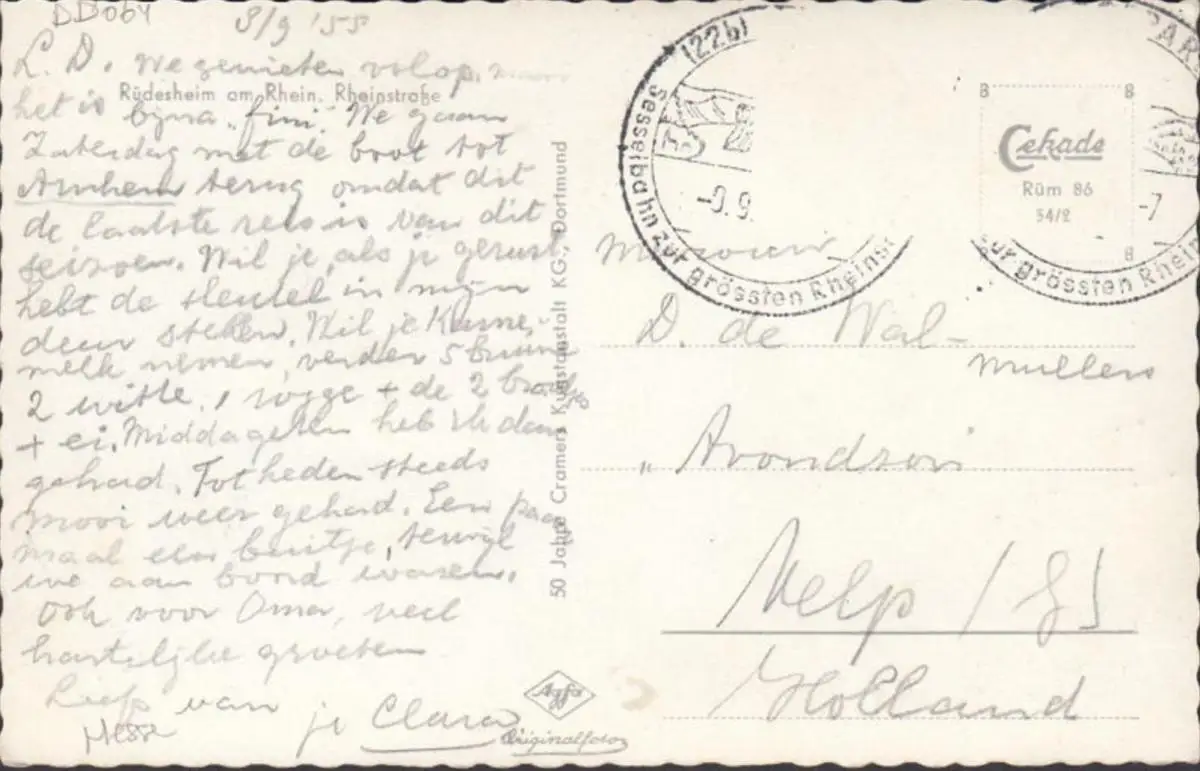 DD064
8/9 '55
L. D. We genieten volop, maar
Rüdesheim am Rhein. Rheinstraße
het is bijna „fini". We gaan
Zaterdag met de boot tot
Arnhem terug omdat dit
de laatste reis is van dit
seizoen. Wil je, als je gerust
hebt de sleutel in mijn
deur stellen. Wil je karne-
melk nemen, verder 5 bruine
2 witte, 1 rogge + de 2
+ ei. Middageten heb ik dan
gehad. Tot heden steeds
mooi weer gehad. Een paar
maal een buitje, terwijl
we aan boord waren.
Ook voor Oma, veel
hartelijke groeten
Liefs van
je Clara
50 Jahre Cramers Kunstanstalt KG., Dortmund
Agfa
Originalfoto
(22b)
Sesselbahn zur grössten Rheinst
-9.9.
zur grössten Rhein
-7
8 8
Cekade
Rüm 86
54/2
8
Mevrouw
D. de Wal-
Mullers
„Avondzon
Velp / G
Holland